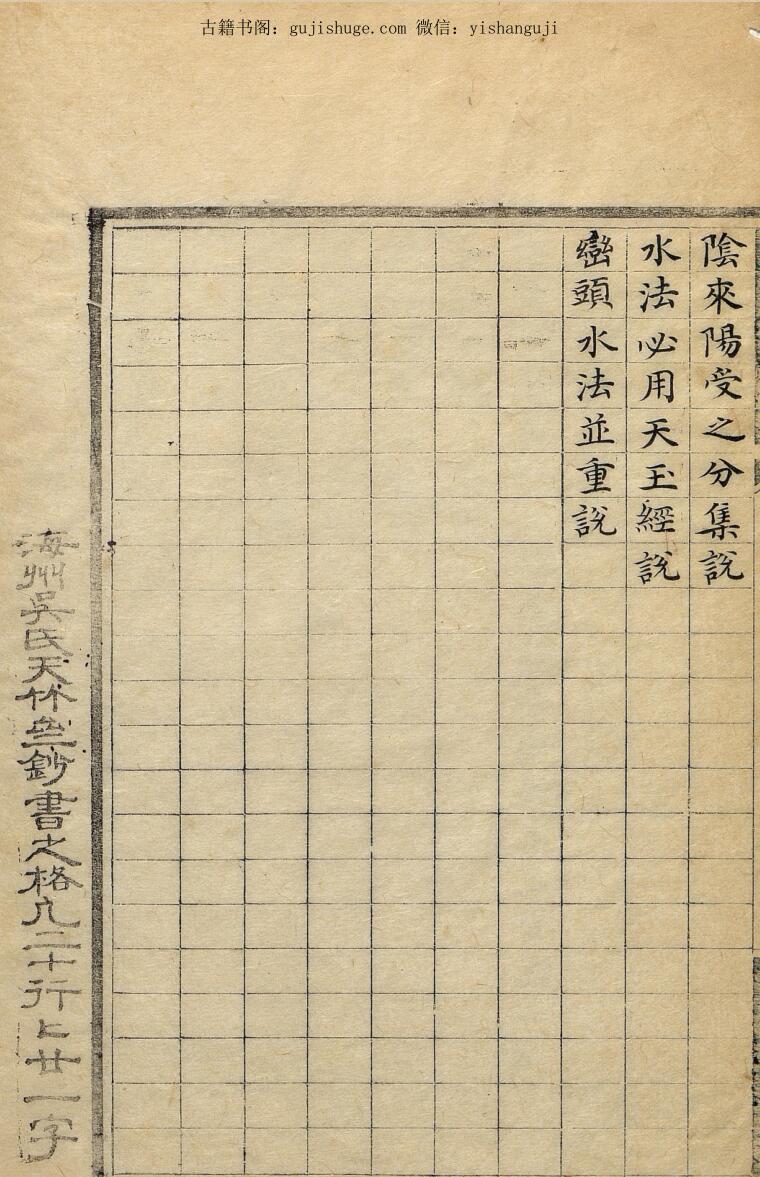 古籍书阁：gujishuge.com 微信：yishanguji
陰來陽受之分集說
水法必用天玉經說
巒頭水法並重說
海州吳氏天竹盦鈔書之格凡二十行〻廿一字